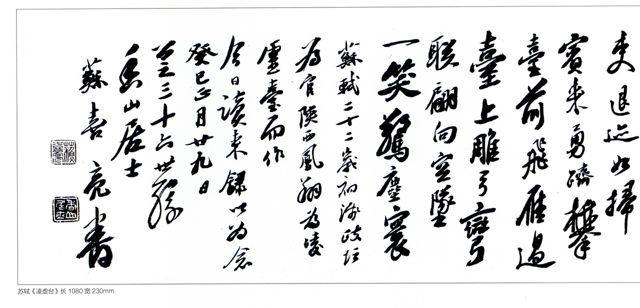 吏退迹如掃
賓來勇躋攀
臺前飛雁過
臺上雕弓彎
聯翩向空墜
一笑驚塵寰
蘇軾二十二歲初涉政壇
為官陝西鳳翔為凌
虛臺而作
今日讀來錄以為念
癸巳正月廿九日
三十六世孫
山居士
蘇喜亮書
苏轼《凌虚台》长 1080 宽 230mm